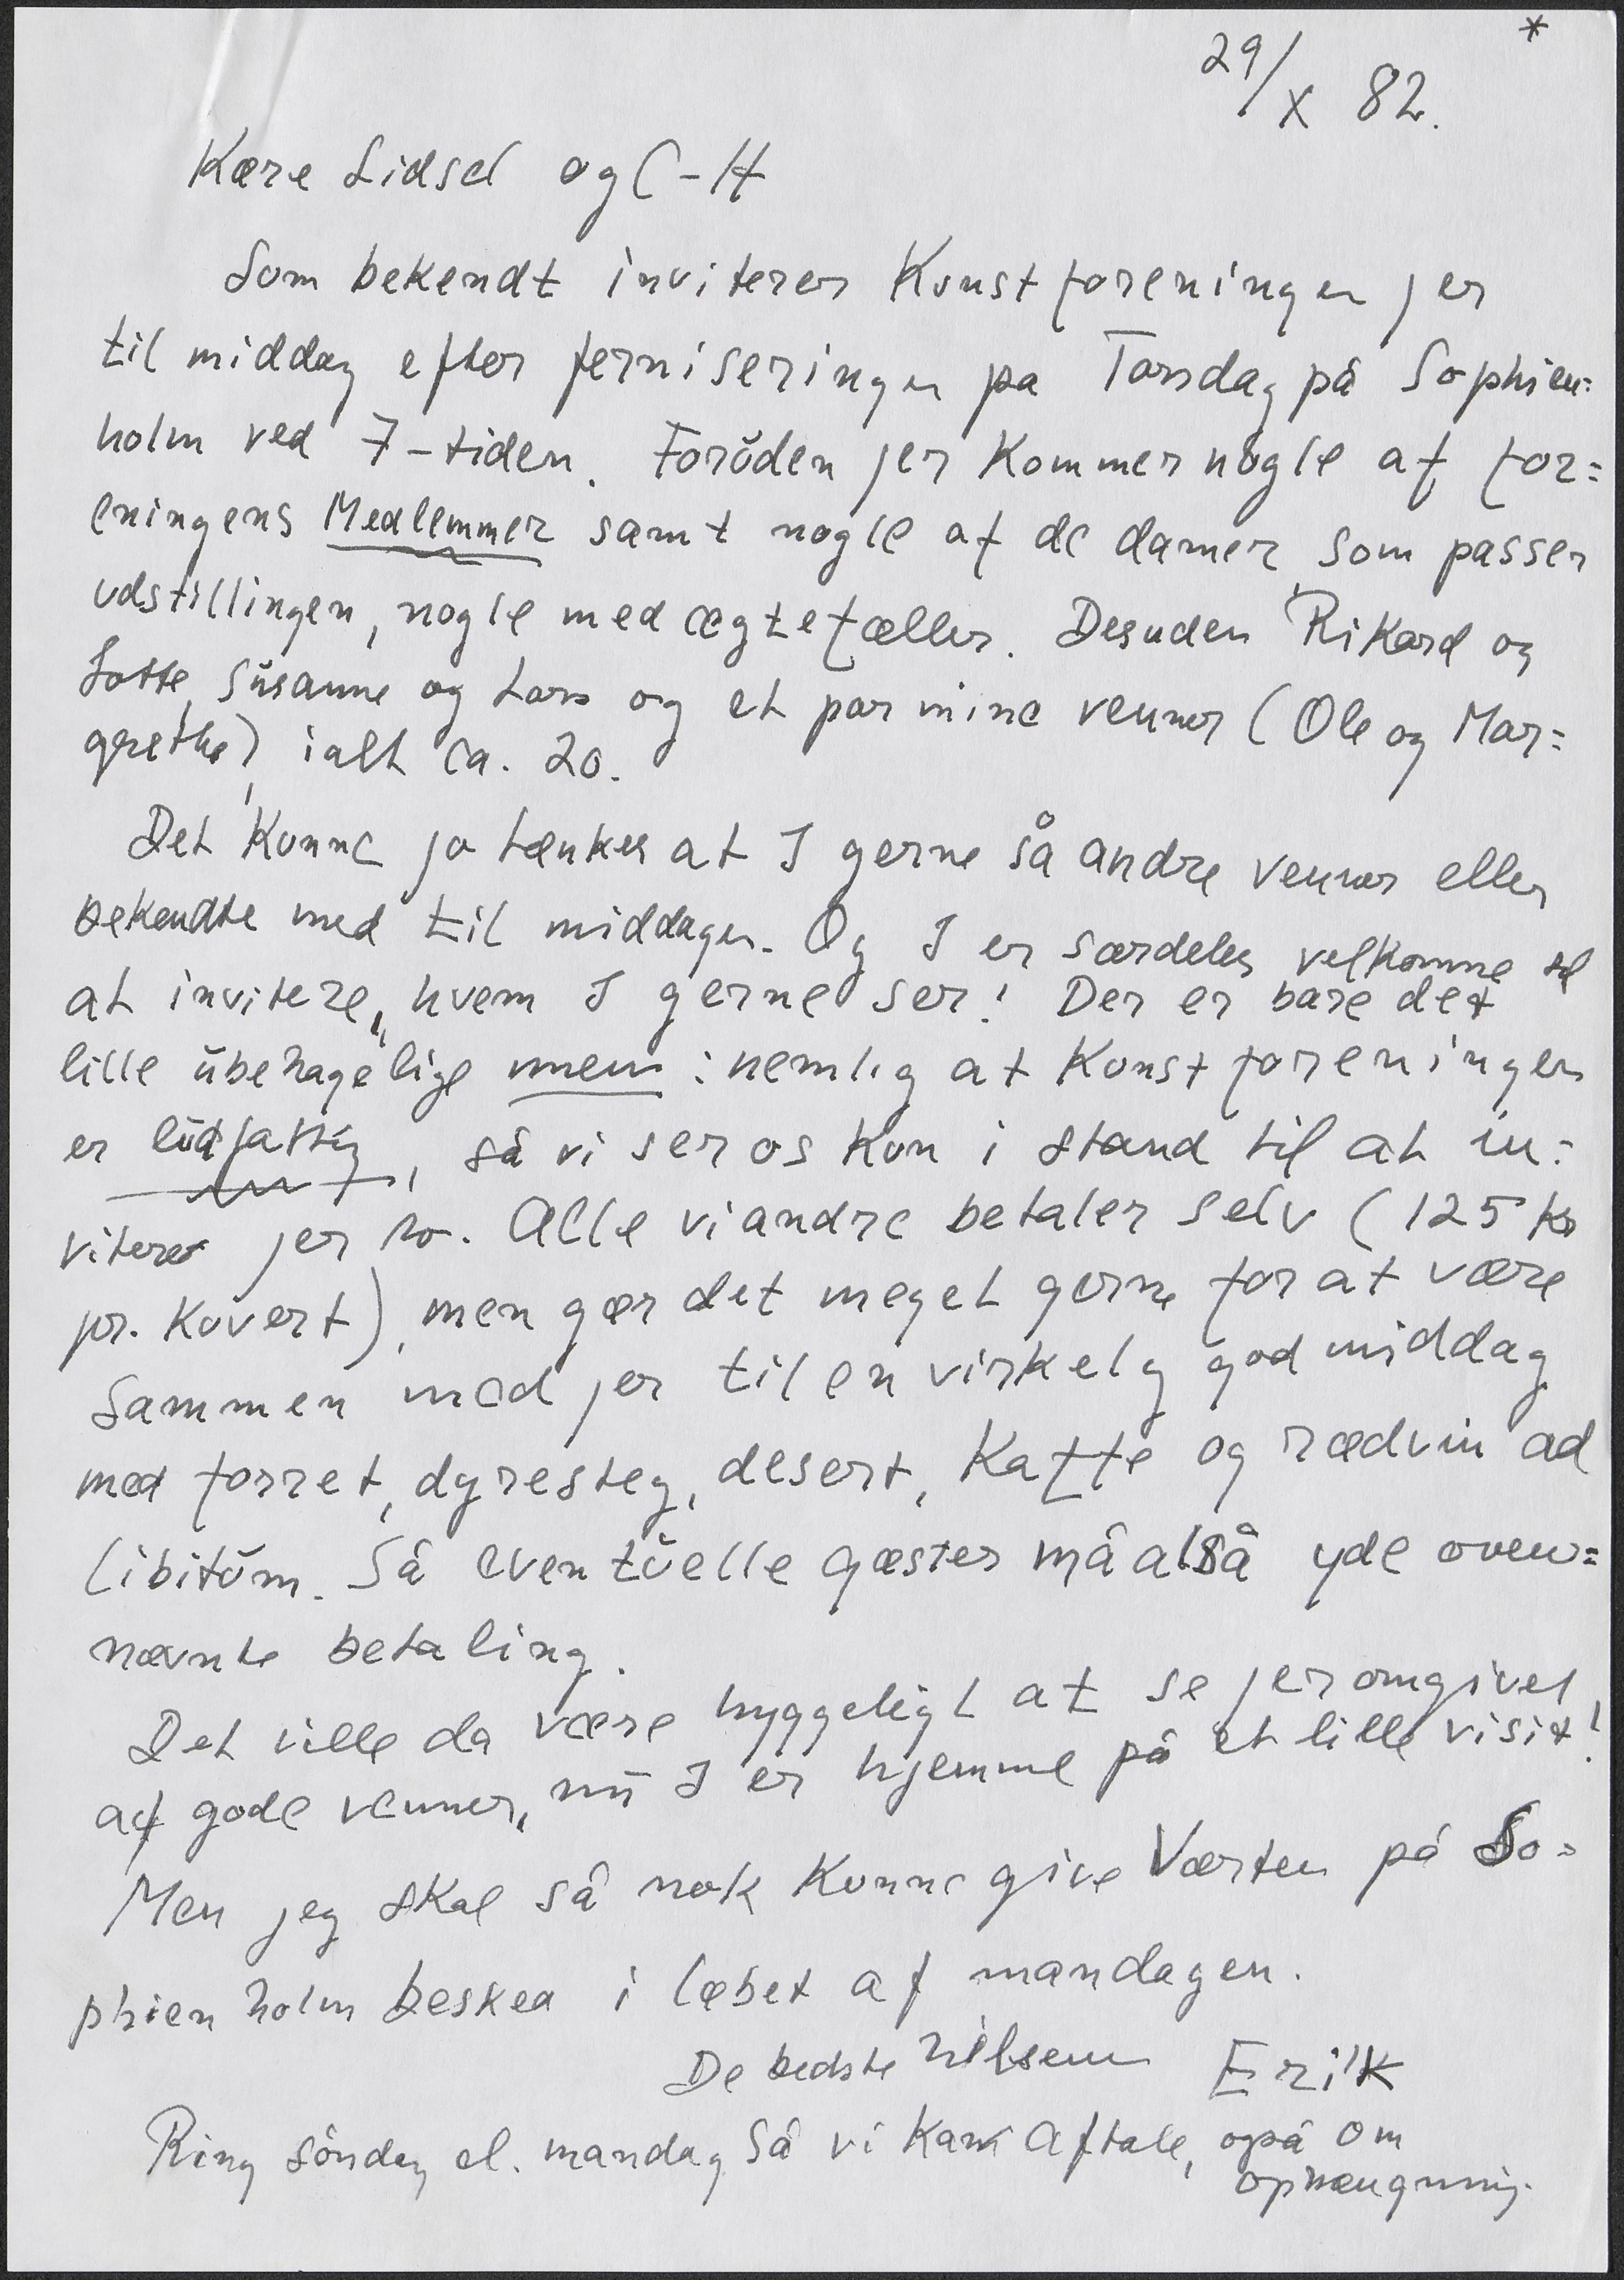 *
29/X 82.
Kære Lidsel og C-H
Som bekendt inviterer Kunstforeningen jer
til middag efter ferniseringen pa Torsdag på Sophien=
holm ved 7-tiden. Forŭden jer kommer nogle af for=
eningens Medlemmer samt nogle af de damer som passer
udstillingen, nogle med ægtefæller. Desuden Rikard og
Lotte, Sŭsanne og Lars og et par mine venner (Ole og Mar=
grethe), ialt ca. 20.
Det kunne jo tænkes at I gerne så andre venner eller
bekendte med til middagen. Og I er særdeles velkomne til
at invitere, hvem I gerne ser! Der er bare det
lille ŭbehagelige men: nemlig at Kunstforeningen
er lŭdfattig, så vi ser os kun i stand til at in=
vitere jer to. Alle vi andre betaler selv (125 kr
pr. kŭvert), men gør det meget gerne for at være
sammen med jer til en virkelig god middag
med forret, dyresteg, desert, kaffe og rædvin ad
libitŭm. Så eventŭelle gæster må altså yde oven=
nævnte betaling.
Det ville da være hyggeligt at se jer omgivet
af gode venner, nŭ I er hjemme på et lille visit!
Men jeg skal så nok kunne give Værten på So=
phienholm besked i læbet af mandagen.
De bedste hilsener Erik
Ring söndag el. mandag så vi kan aftale, også om
ophængning.